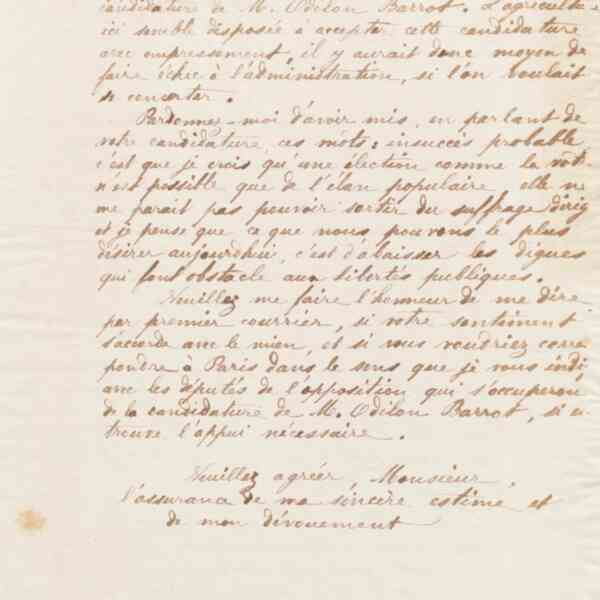 candidature de M. Odilon Barrot. L'agriculture
ici semble disposée à accepter cette candidature
avec empressement, il y aurait donc moyen de
faire échec à l'administration, si l'on voulait
se concerter.
Pardonnez-moi d'avoir mis, en parlant de
votre candidature, ces mots: insuccès probable,
c'est que je crois qu'une élection comme la vôtre
n'est possible que de l'élan populaire elle ne
me parait pas pouvoir sortir du suffrage dirig
et je pense que ce que nous pouvons le plus
désirer aujourdhui, c'est d'abaisser les digues
qui font obstacle aux libertés publiques.
Veuillez me faire l'honneur de me dire
par premier courrier, si votre sentiment
s'accorde avec le mien, et si vous voudriez corres
pondre à Paris dans le sens que je vous indi
avec les députés de l'opposition qui s'occuperon
de la candidature de M. Odilon Barrot, si
trouve l'appui nécessaire.
Veuillez agréer, Monsieur,
l'assurance de ma sincère estime et
de mon dévouement